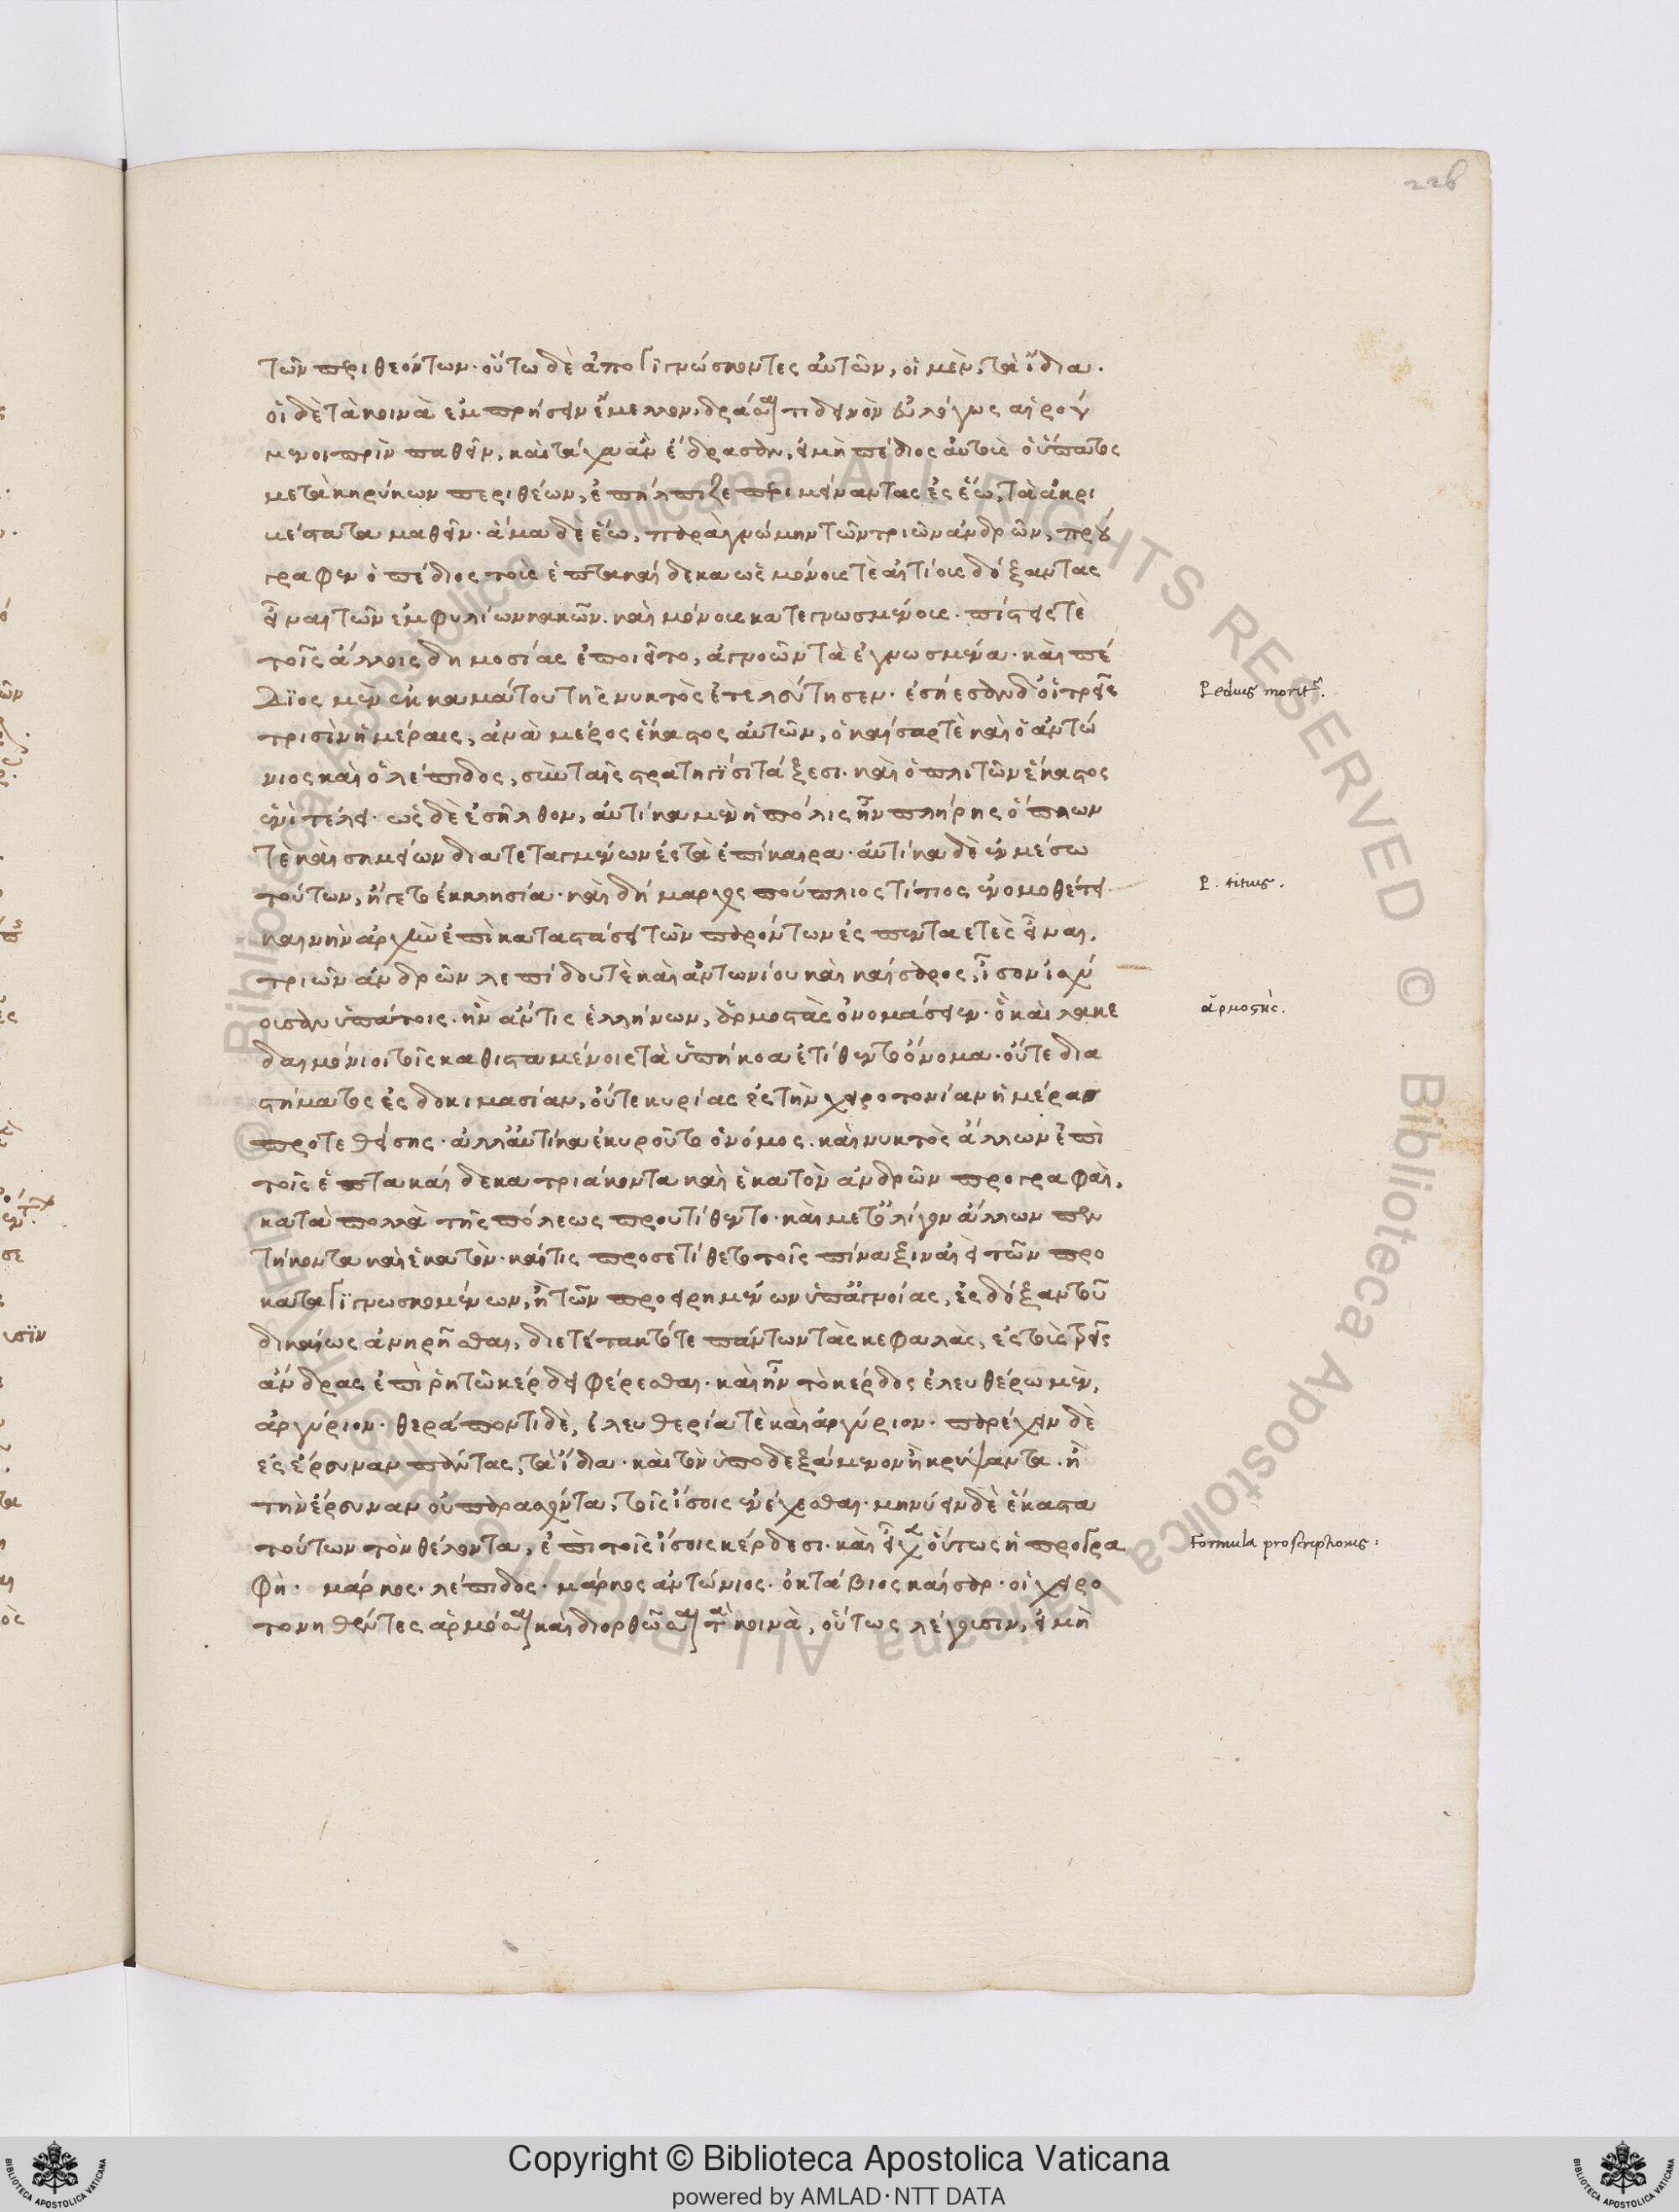 226
τῶν περιθεόντων· οὕτω δὲ ἀπογιγνώσκοντες αὐτῶν, οἱ μὲν, τὰ ἴδια·
οἱ δὲ τὰ κοινὰ ἐμπρήσειν ἔμελλον, δρᾶσαί τι δεινὸν ἀλόγως αἱρού
μενοι πρὶν παθεῖν, καὶ τάχα ἂν ἔδρασαν, εἰ μὴ πέδιος αὐτοῖς ὁ ὕπατος
μετὰ κηρύκων περιθέων, ἐπήλπιζε περιμείναντας ἐς ἕω, τὰ ἀκρι
βέστατα μαθεῖν· ἅμα δὲ ἕω, παρὰ γνώμην τῶν τριῶν ἀνδρῶν, πρού
γραφεν ὁ πέδιος τοὺς ἑπτακαίδεκα ὡς μόνους τὲ αἰτίους δόξαντας
εἶναι τῶν ἐμφυλίων κακῶν. καὶ μόνους κατεγνωσμένους. πίστεις τὲ
τοῖς ἄλλοις δημοσίας ἐποιεῖτο, ἀγνοῶν τὰ ἐγνωσμένα· καὶ πέ
διος μὲν ἐκ καμάτου τῆς νυκτὸς ἐτελεύτησεν. ἐσῄεσαν δ' οἱ τρεῖς
Pedius moritur.
τρισὶν ἡμέραις, ἀνὰ μέρος ἕκαστος αὐτῶν, ὁ καῖσαρ τὲ καὶ ὁ ἀντώ
νιος καὶ ὁ λέπιδος, σὺν ταῖς στρατηγίσι τάξεσι. καὶ ὁπλιτῶν ἕκαστος
ἑνὶ τέλει· ὡς δὲ ἐσῆλθον, αὐτίκα μὲν ἡ πόλις ἦν πλήρης ὅπλων
τὲ καὶ σημείων διατεταγμένων ἐς τὰ ἐπίκαιρα· αὐτίκα δὲ ἐν μέσω
τούτων, ἤγετο ἐκκλησία· καὶ δήμαρχος πούπλιος τίτιος ἐνομοθέτει
P. titius.
καινὴν ἀρχὴν ἐπὶ καταστάσει τῶν παρόντων ἐς πενταετὲς εἶναι,
τριῶν ἀνδρῶν λεπίδου τὲ καὶ ἀντωνίου καὶ καίσαρος, ἴσον ἰσχύ
ουσαν ὑπάτοις. ἣν ἄν τις ἑλλήνων, ἁρμοστὰς ὀνομάσειεν· ὃ καὶ λακε
ἁρμοστής.
δαιμόνιοι τοῖς καθισταμένοις τὰ ὑπήκοα ἐτίθεντο ὄνομα· οὔτε δια
στήματος ἐς δοκιμασίαν, οὔτε κυρίας ἐς τὴν χειροτονίαν ἡμέρας
προτεθείσης· ἀλλ' αὐτίκα ἐκυροῦτο ὁ νόμος. καὶ νυκτὸς ἄλλων ἐπὶ
τοῖς ἑπτακαίδεκα τριάκοντα καὶ ἑκατὸν ἀνδρῶν προγραφαὶ,
κατὰ πολλὰ τῆς πόλεως προυτίθεντο· καὶ μετ' ὀλίγον ἄλλων πεν
τήκοντα καὶ ἑκατόν· καί τις προσετίθετο τοῖς πίναξιν αἰεὶ τῶν προ
καταγιγνωσκομένων, ἢ τῶν προειρημένων ὑπ' ἀγνοίας, ἐς δόξαν τοῦ
δικαίως ἀνῃρῆσθαι, διετέτακτό τε πάντων τὰς κεφαλὰς, ἐς τοὺς τρεῖς
ἄνδρας ἐπὶ ῥητῶ κέρδει φέρεσθαι· καὶ ἦν τὸ κέρδος ἐλευθέρω μὲν,
ἀργύριον· θεράποντι δὲ, ἐλευθερία τὲ καὶ ἀργύριον· παρέχειν δὲ
ἐς ἔρευναν πάντας, τὰ ἴδια· καὶ τὸν ὑποδεξάμενον ἢ κρύψαντα. ἢ
τὴν ἔρευναν οὐ παρασχόντα, τοῖς ἴσοις ἐνέχεσθαι· μηνύειν δὲ ἕκαστα
τούτων τὸν θέλοντα, ἐπὶ τοῖς ἴσοις κέρδεσι· καὶ εἶχεν οὕτως ἡ προγρα
Formula proscriptionis.
φὴ· μάρκος· λέπιδος· μάρκος ἀντώνιος· ὀκτάβιος καῖσαρ· οἱ χειρο
τονηθέντες ἁρμόσαι καὶ διορθῶσαι τὰ κοινὰ, οὕτως λέγουσιν, εἰ μὴ
© Biblioteca Apostolica Vaticana ALL RIGHTS RESERVED
Copyright © Biblioteca Apostolica Vaticana
powered by AMLAD·NTT DATA
BIBLIOTECA APOSTOLICA VATICANA